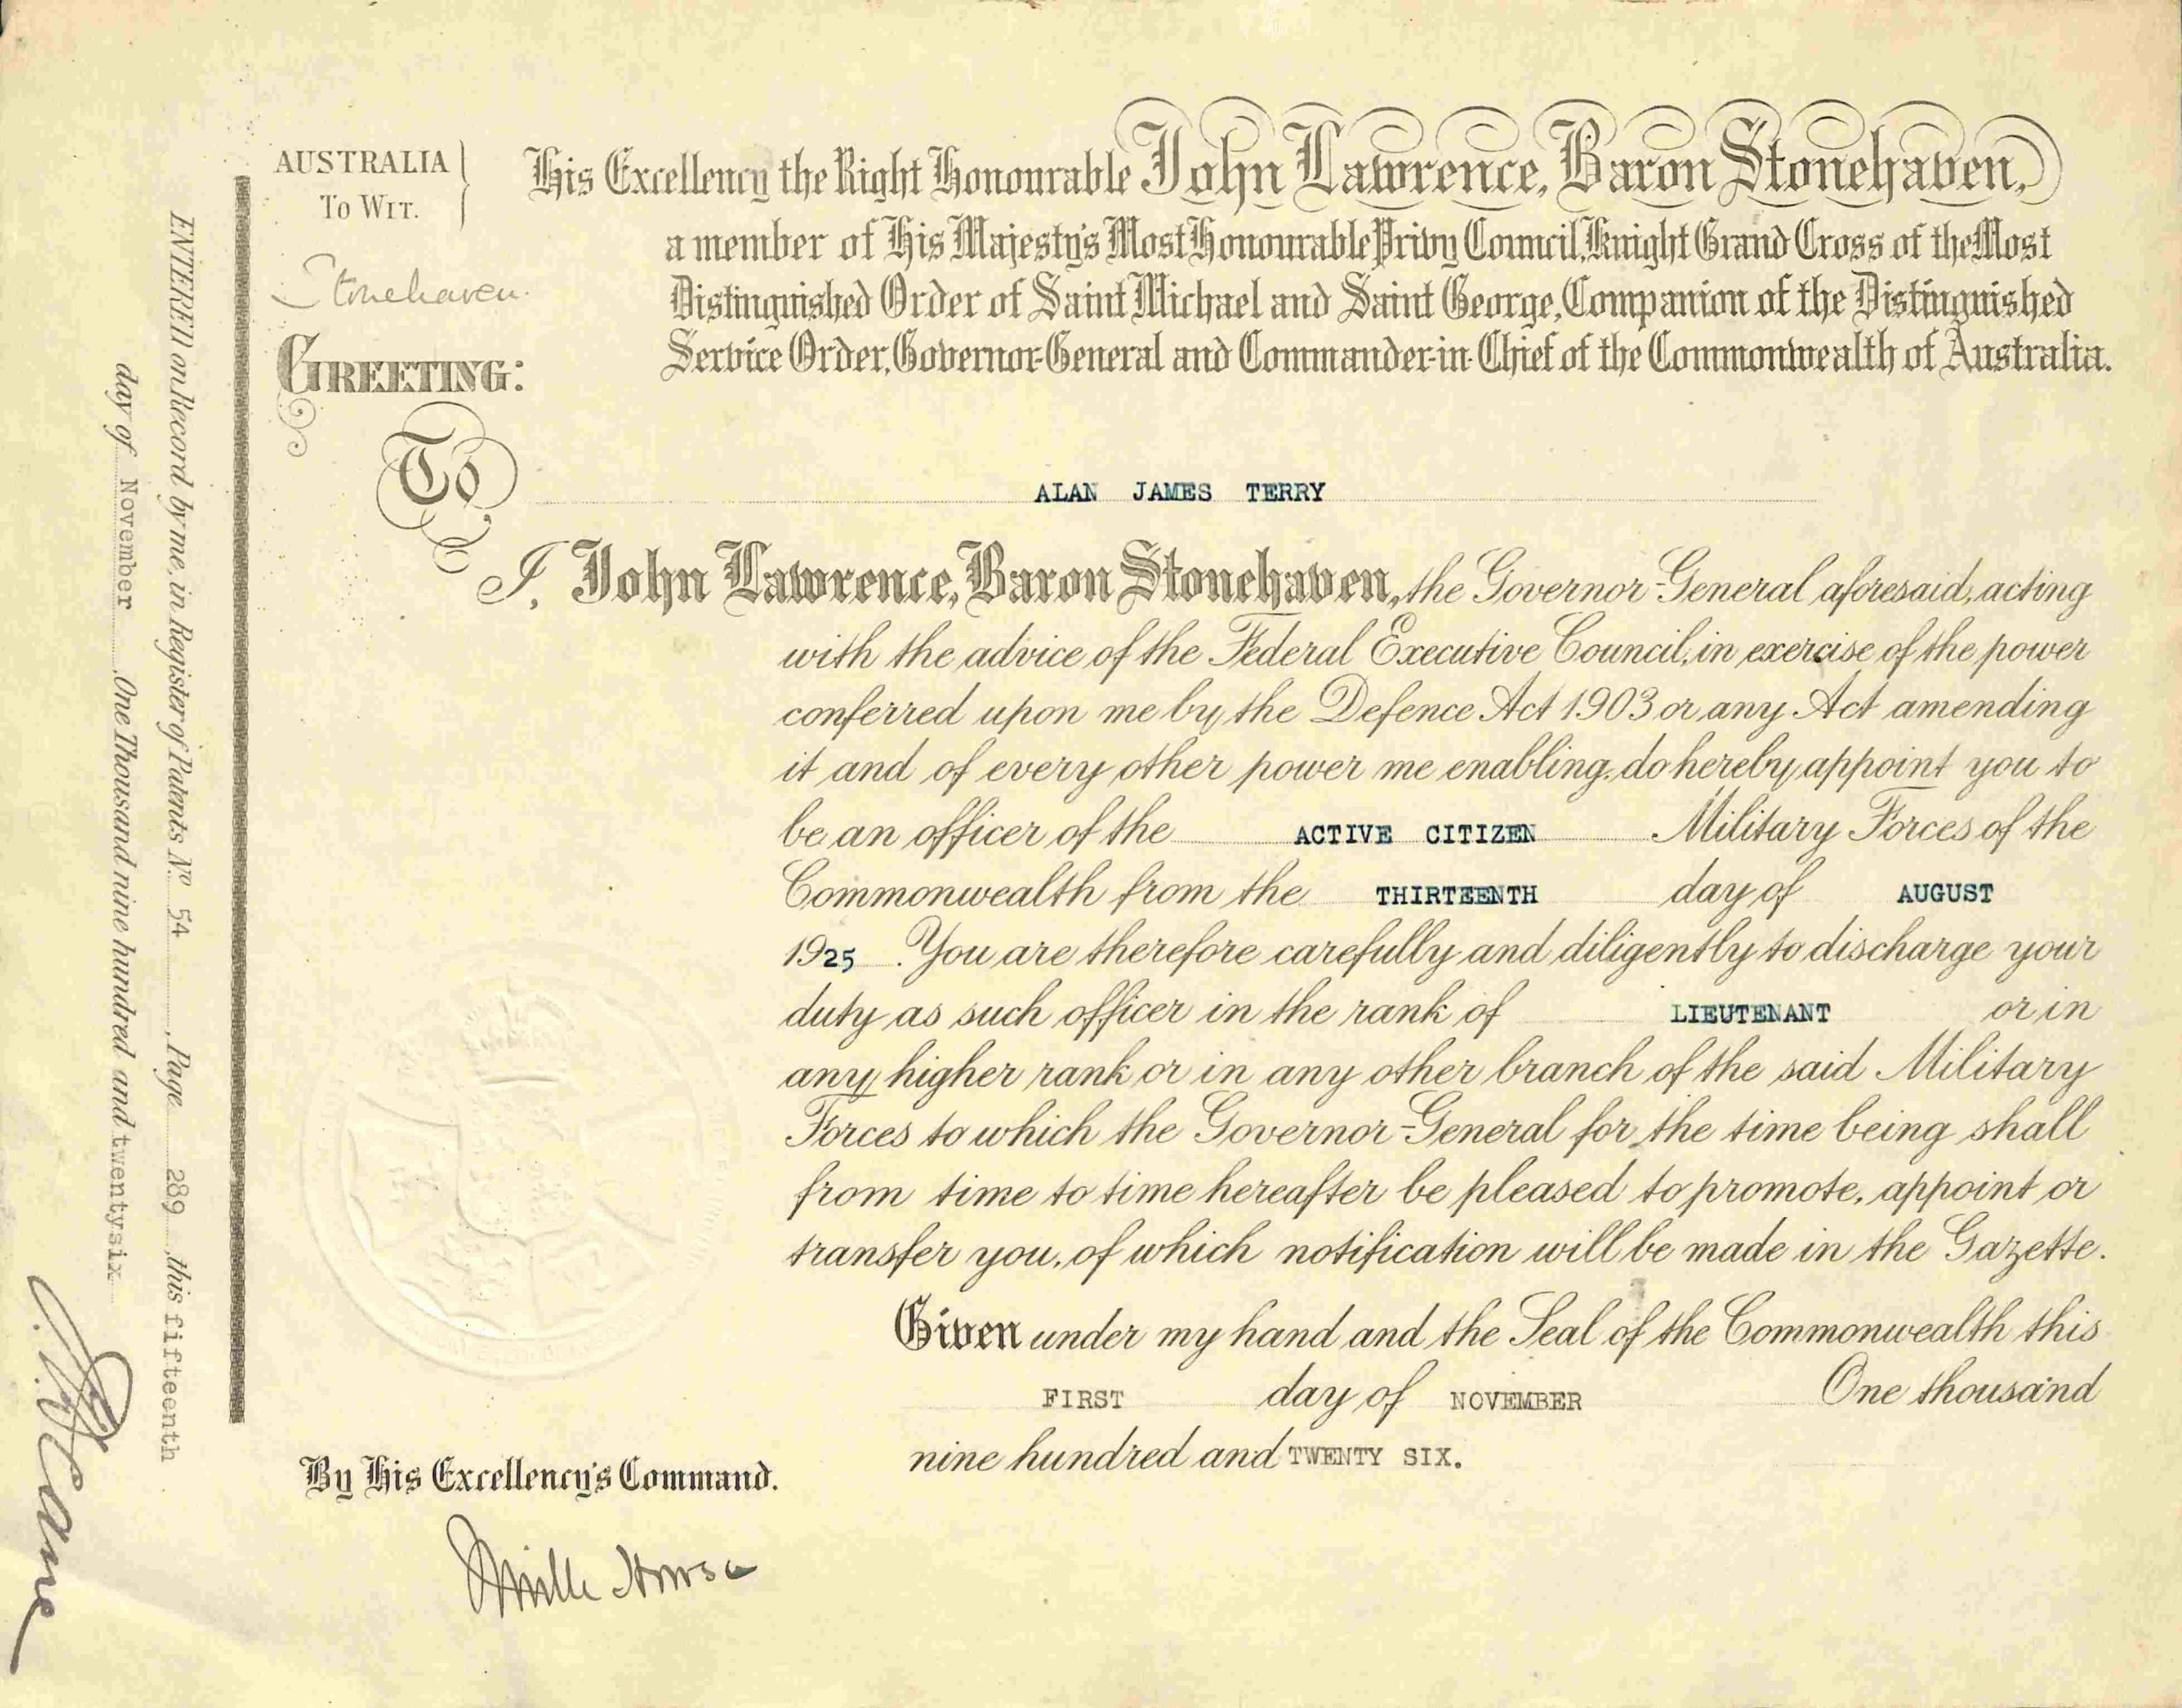 AUSTRALIA
To Wit.
Stonehaven.
Greeting:
His Excellency the Right Honourable John Lawrence, Baron Stonehaven,
a member of His Majesty's Most Honourable Privy Council, Knight Grand Cross of the Most
Distinguished Order of Saint Michael and Saint George, Companion of the Distinguished
Service Order, Governor-General and Commander-in-Chief of the Commonwealth of Australia.
To ALAN JAMES TERRY
I, John Lawrence, Baron Stonehaven, the Governor-General aforesaid, acting
with the advice of the Federal Executive Council, in exercise of the power
conferred upon me by the Defence Act 1903 or any Act amending
it and of every other power me enabling, do hereby appoint you to
be an officer of the ACTIVE CITIZEN Military Forces of the
Commonwealth from the THIRTEENTH day of AUGUST
1925. You are therefore carefully and diligently to discharge your
duty as such officer in the rank of LIEUTENANT or in
any higher rank or in any other branch of the said Military
Forces to which the Governor-General for the time being shall
from time to time hereafter be pleased to promote, appoint or
transfer you, of which notification will be made in the Gazette.
Given under my hand and the Seal of the Commonwealth this
FIRST day of NOVEMBER One thousand
nine hundred and TWENTY SIX.
By His Excellency's Command.
Neville Howse
ENTERED on Record by me, in Register of Patents No 54, Page 289, this fifteenth
day of November, One Thousand nine hundred and twentysix